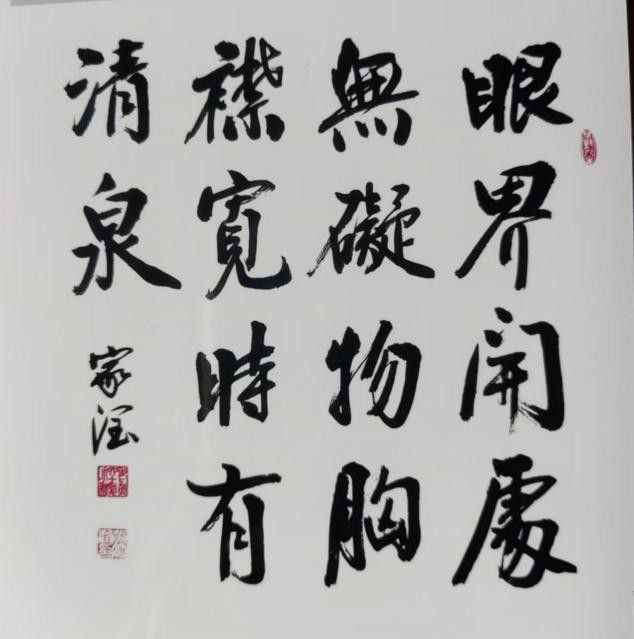 眼界開處
無礙物胸
襟寬時有
清泉
家滢